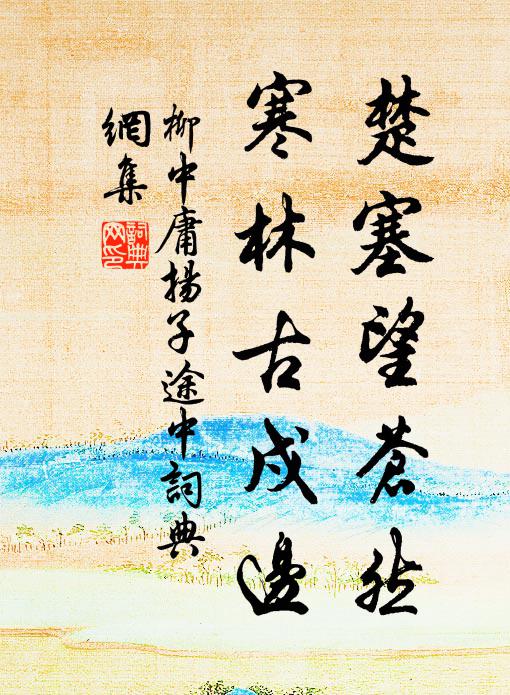 楚塞望蒼然
寒林古戍邊
柳中庸揚子途中詞典
網集
詞典
网印